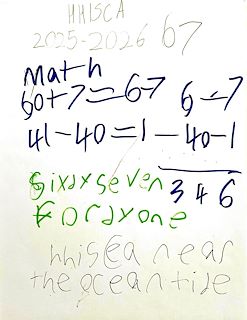 HHISCA
2025-2026 67
Math
60+7=67 6-7
41-40=1-40-1
Sixax seven 346
Forayone
hhisca near
the ocean tide